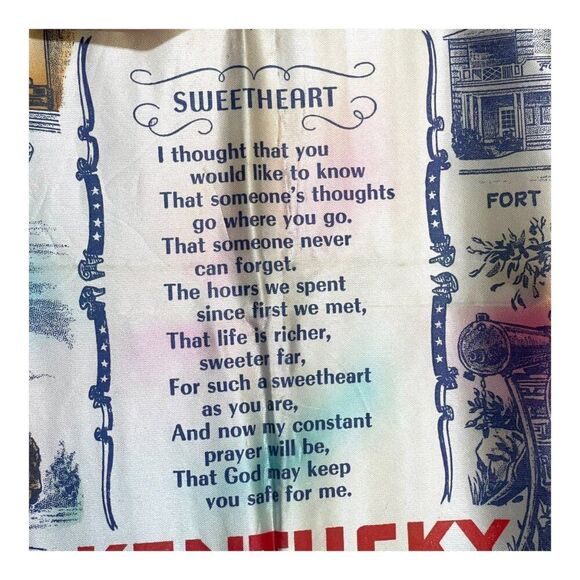 SWEETHEART
I thought that you
would like to know
That someone's thoughts
go where you go.
That someone never
can forget.
The hours we spent
since first we met,
That life is richer,
sweeter far,
For such a sweetheart
as you are,
And now my constant
prayer will be,
That God may keep
you safe for me.
FORT
KENTUCKY